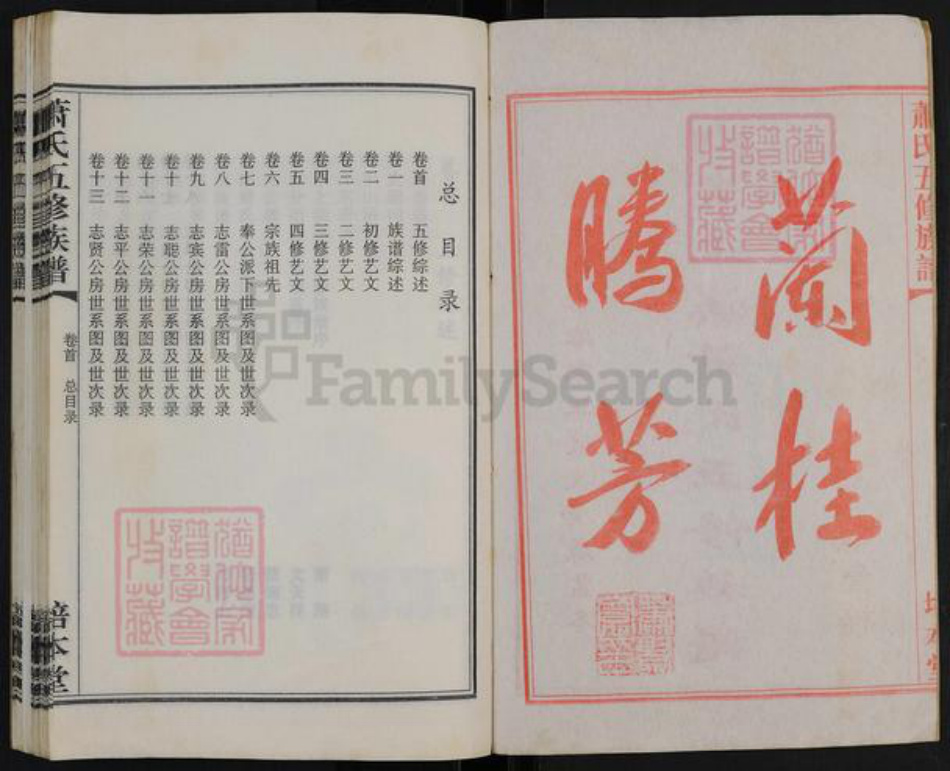 蘭桂
騰芳
萧氏五修族谱
总目录
卷首 五修综述
卷一 族谱综述
卷二 初修艺文
卷三 二修艺文
卷四 三修艺文
卷五 四修艺文
卷六 宗族祖先
卷七 奉公派下世系图及世次录
卷八 志雷公房世系图及世次录
卷九 志宾公房世系图及世次录
卷十 志聪公房世系图及世次录
卷十一 志荣公房世系图及世次录
卷十二 志平公房世系图及世次录
卷十三 志贤公房世系图及世次录
萧氏五修族谱
卷首 总目录
培本堂
FamilySearch